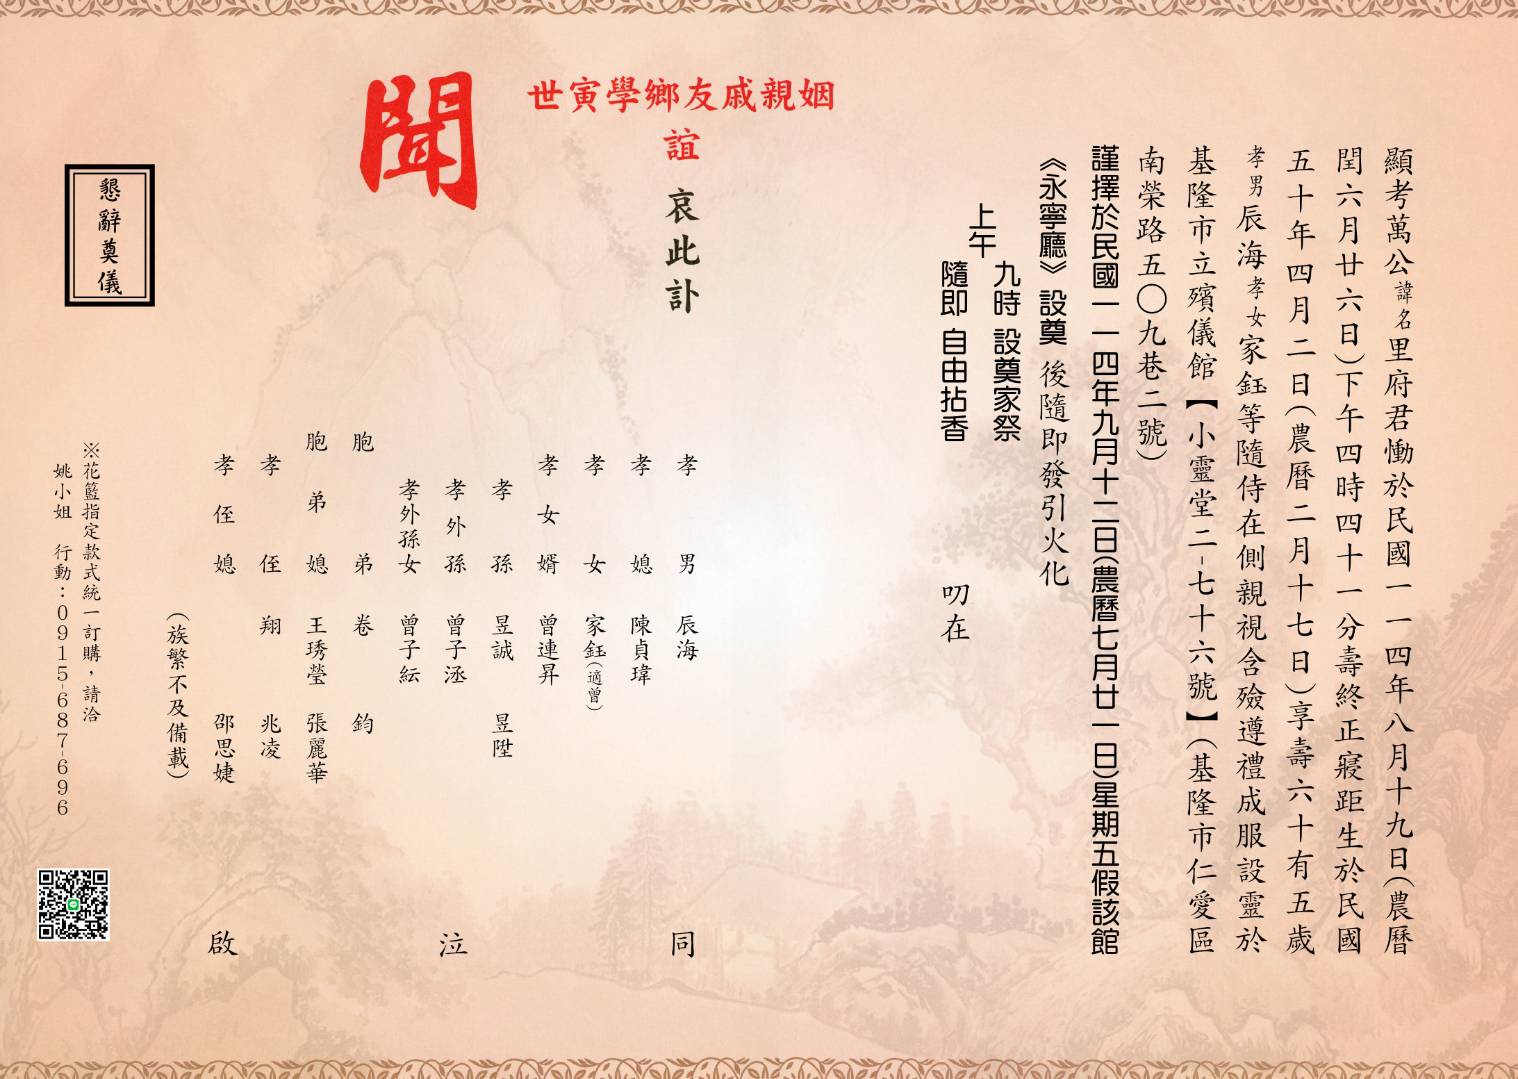 顯考萬公諱名里府君慟於民國一一四年八月十九日(農曆
閏六月廿六日)下午四時四十一分壽終正寢距生於民國
五十年四月二日(農曆二月十七日)享壽六十有五歲
孝男辰海孝女家鈺等隨侍在側親視含殮遵禮成服設靈於
基隆市立殯儀館【小靈堂二-七十六號】(基隆市仁愛區
南榮路五〇九巷二號)
謹擇於民國一一四年九月十二日(農曆七月廿一日)星期五假該館
《永寧廳》設奠 後隨即發引火化
上午
九時 設奠家祭
隨即 自由拈香
叨在
姻親戚友鄉學寅世
誼
哀此訃
聞
孝男 辰海
孝媳 陳貞瑋
孝女 家鈺(適曾)
孝女婿 曾連昇
孝孫 昱誠 昱陞
孝外孫 曾子丞
孝外孫女 曾子紜
胞弟 卷 鈞
胞弟媳 王琇瑩 張麗華
孝侄 翔 兆凌
孝侄媳 邵思婕
(族繁不及備載)
同泣啟
懇辭奠儀
※花籃指定款式統一訂購，請洽
姚小姐 行動：0915-687-696